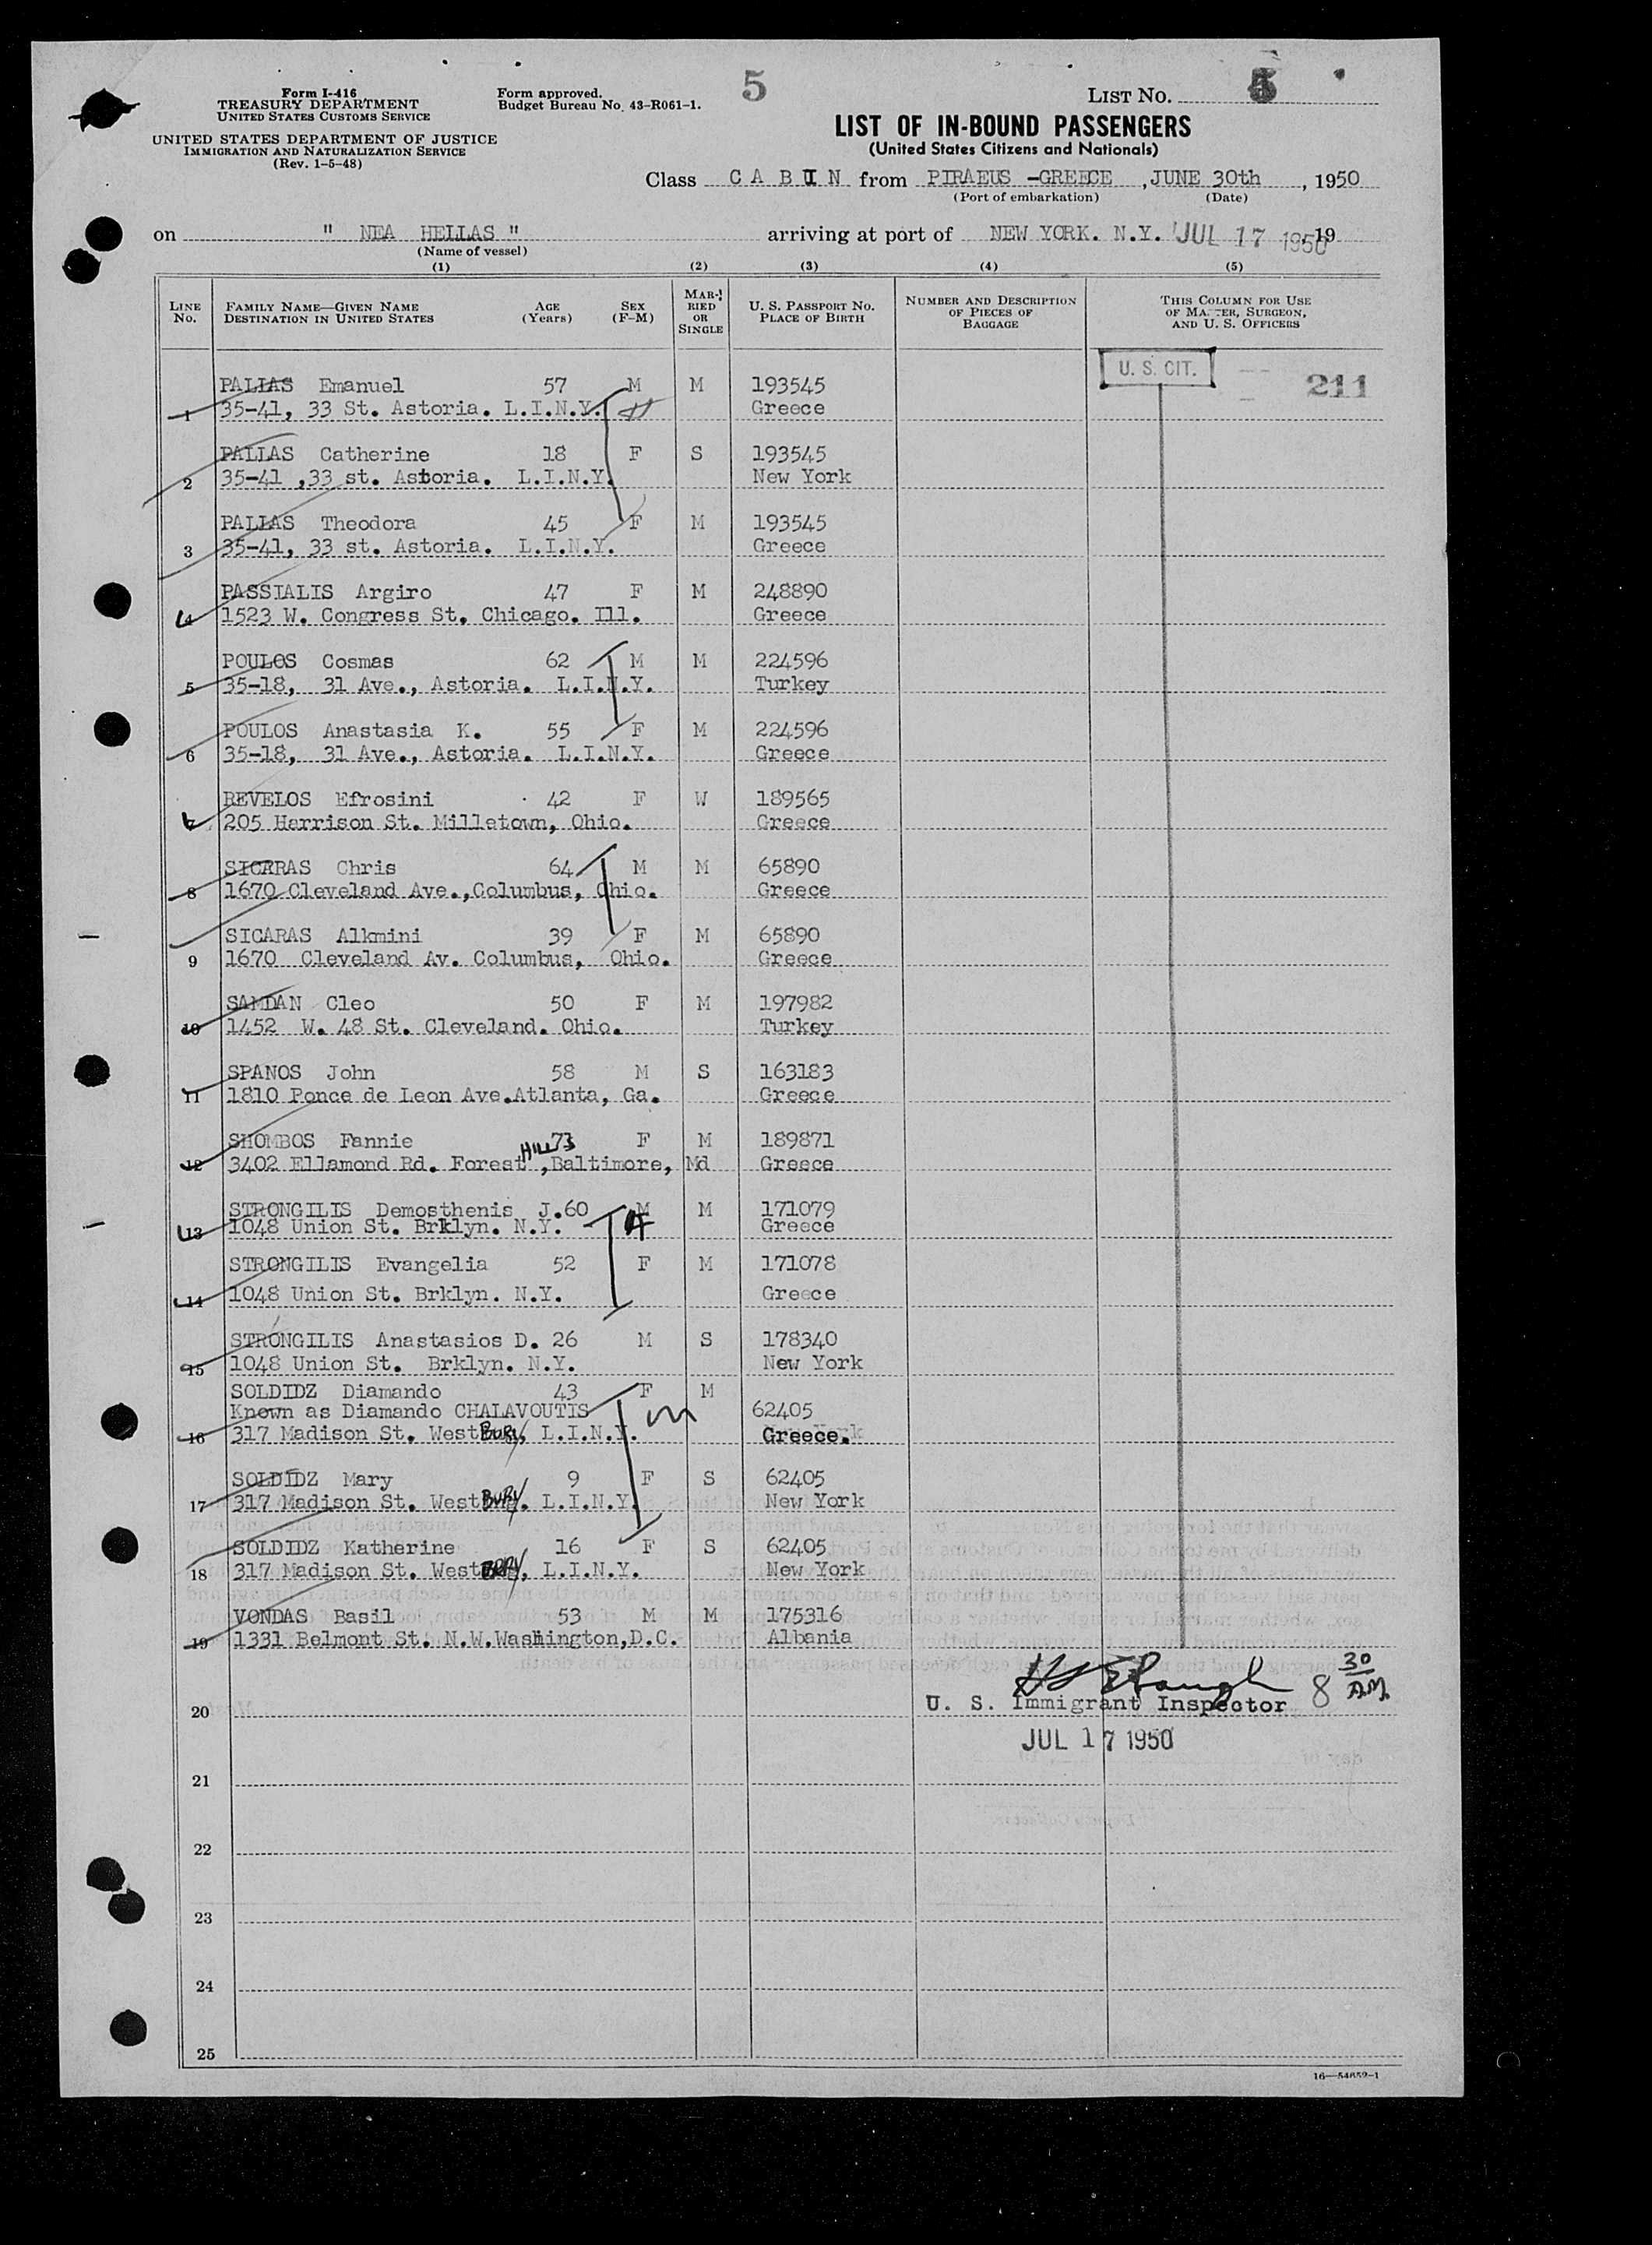 Form I-416
TREASURY DEPARTMENT
UNITED STATES CUSTOMS SERVICE
UNITED STATES DEPARTMENT OF JUSTICE
IMMIGRATION AND NATURALIZATION SERVICE
(Rev. 1-5-48)
Form approved.
Budget Bureau No. 43-R061-1.
5
LIST NO. 5
LIST OF IN-BOUND PASSENGERS
(United States Citizens and Nationals)
Class CABIN from PIRAEUS -GREECE , JUNE 30th , 1950
(Port of embarkation) (Date)
on " NEA HELLAS " arriving at port of NEW YORK. N.Y. JUL 17 1950, 19
(Name of vessel)
(1) (2) (3) (4) (5)
LINE No.
FAMILY NAME—GIVEN NAME
DESTINATION IN UNITED STATES
AGE (Years)
SEX (F-M)
MARRIED OR SINGLE
U. S. PASSPORT NO.
PLACE OF BIRTH
NUMBER AND DESCRIPTION OF PIECES OF BAGGAGE
THIS COLUMN FOR USE OF MASTER, SURGEON, AND U. S. OFFICERS
U. S. CIT. 211
PALIAS Emanuel 57 M M 193545
1 35-41, 33 St. Astoria. L.I.N.Y. Greece
PALIAS Catherine 18 F S 193545
2 35-41 ,33 st. Astoria. L.I.N.Y. New York
PALIAS Theodora 45 F M 193545
3 35-41, 33 st. Astoria. L.I.N.Y. Greece
PASSIALIS Argiro 47 F M 248890
4 1523 W. Congress St. Chicago. Ill. Greece
POULOS Cosmas 62 M M 224596
5 35-18, 31 Ave., Astoria. L.I.N.Y. Turkey
POULOS Anastasia K. 55 F M 224596
6 35-18, 31 Ave., Astoria. L.I.N.Y. Greece
REVELOS Efrosini 42 F W 189565
7 205 Harrison St. Milletown, Ohio. Greece
SICARAS Chris 64 M M 65890
8 1670 Cleveland Ave.,Columbus, Ohio. Greece
SICARAS Alkmini 39 F M 65890
9 1670 Cleveland Av. Columbus, Ohio. Greece
SAMDAN Cleo 50 F M 197982
10 1452 W. 48 St. Cleveland. Ohio. Turkey
SPANOS John 58 M S 163183
11 1810 Ponce de Leon Ave.Atlanta, Ga. Greece
SHOMBOS Fannie 73 F M 189871
12 3402 Ellamond Rd. Forest HILL,Baltimore, Md Greece
STRONGILIS Demosthenis J.60 M M 171079
13 1048 Union St. Brklyn. N.Y. Greece
STRONGILIS Evangelia 52 F M 171078
14 1048 Union St. Brklyn. N.Y. Greece
STRONGILIS Anastasios D. 26 M S 178340
15 1048 Union St. Brklyn. N.Y. New York
SOLDIDZ Diamando 43 F M
Known as Diamando CHALAVOUTIS 62405
16 317 Madison St. WestBURY, L.I.N.Y. Greece.
SOLDIDZ Mary 9 F S 62405
17 317 Madison St. WestBURY. L.I.N.Y. New York
SOLDIDZ Katherine 16 F S 62405
18 317 Madison St. WestBURY, L.I.N.Y. New York
VONDAS Basil 53 M M 175316
19 1331 Belmont St. N.W.Washington,D.C. Albania
20 U. S. Immigrant Inspector 8 30 A.M.
JUL 17 1950
21
22
23
24
25
16—54652-1